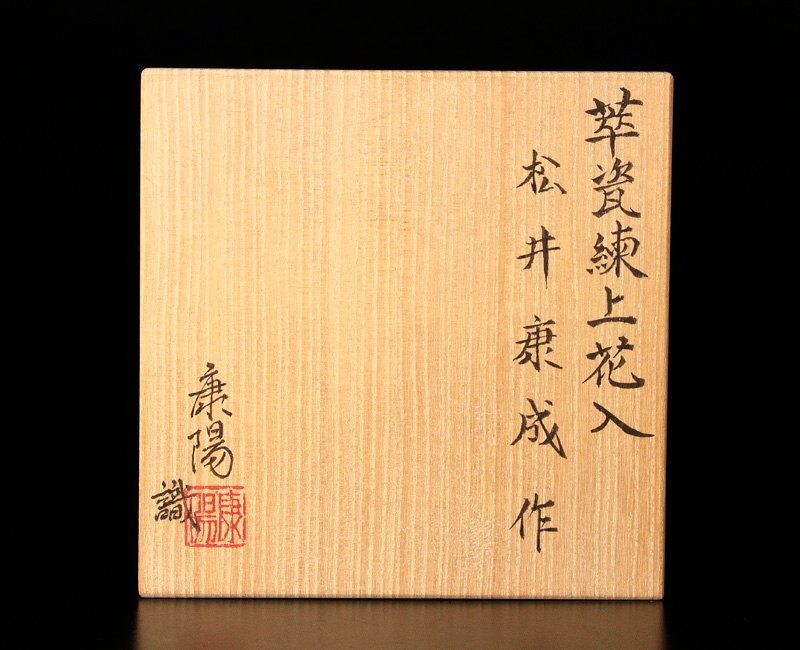 萃瓷練上花入
松井康成作
康陽
識
康陽